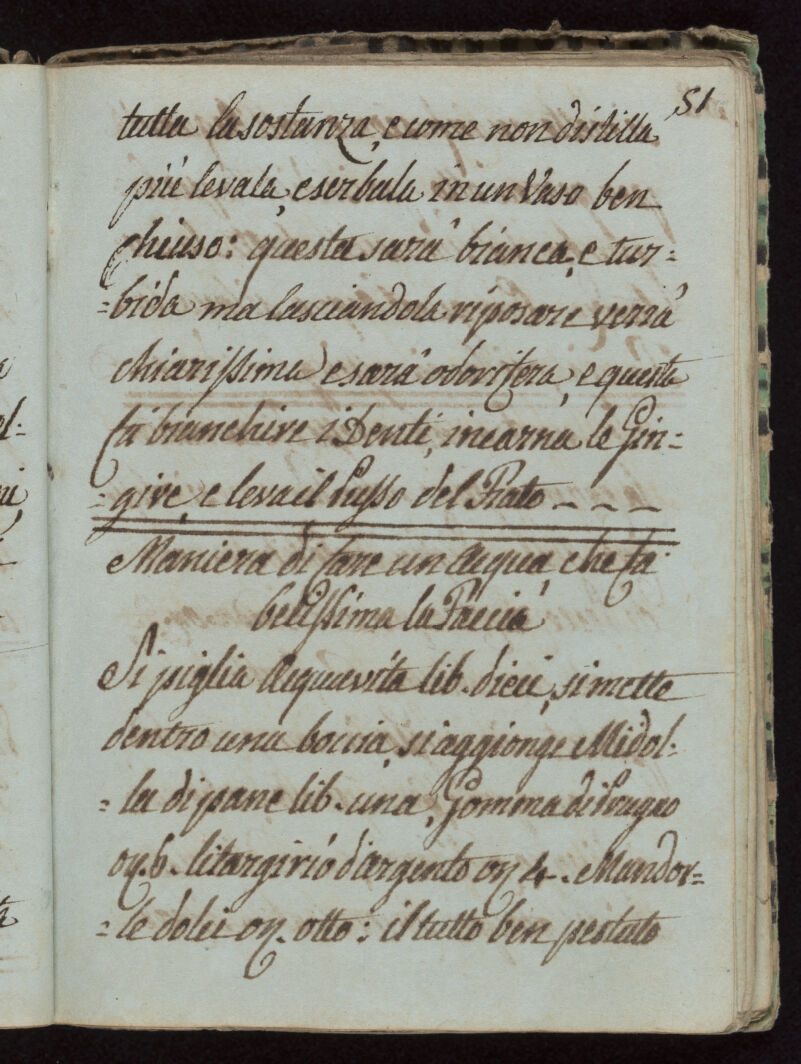 51
tutta la sostanza, e come non distilla
più levala, e serbala in un Vaso ben
chiuso: questa sarà bianca, e tur=
=bida ma lasciandola riposare verrà
chiarissima e sarà odorifera, e questa
fà bianchire i Denti, incarna le Gin=
=give, e leva il Pusso del Fiato - - -
Maniera di fare un Acqua, che fà
belissima la Faccia
Si piglia Acquavita lib. dieci, si mette
dentro una boccia, si aggionge Midol=
=la di pane lib. una, Gomma di Prugno
on. 6. litargirio d'argento on 4. Mandor=
=le dolci on. otto: il tutto ben pestato